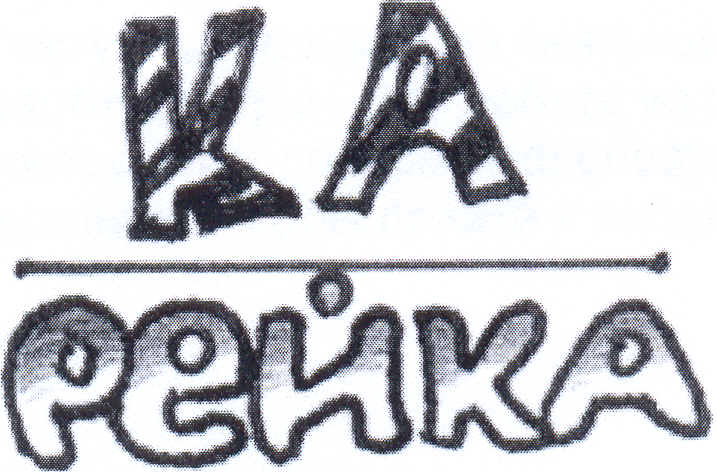 КА
РЕЙКА